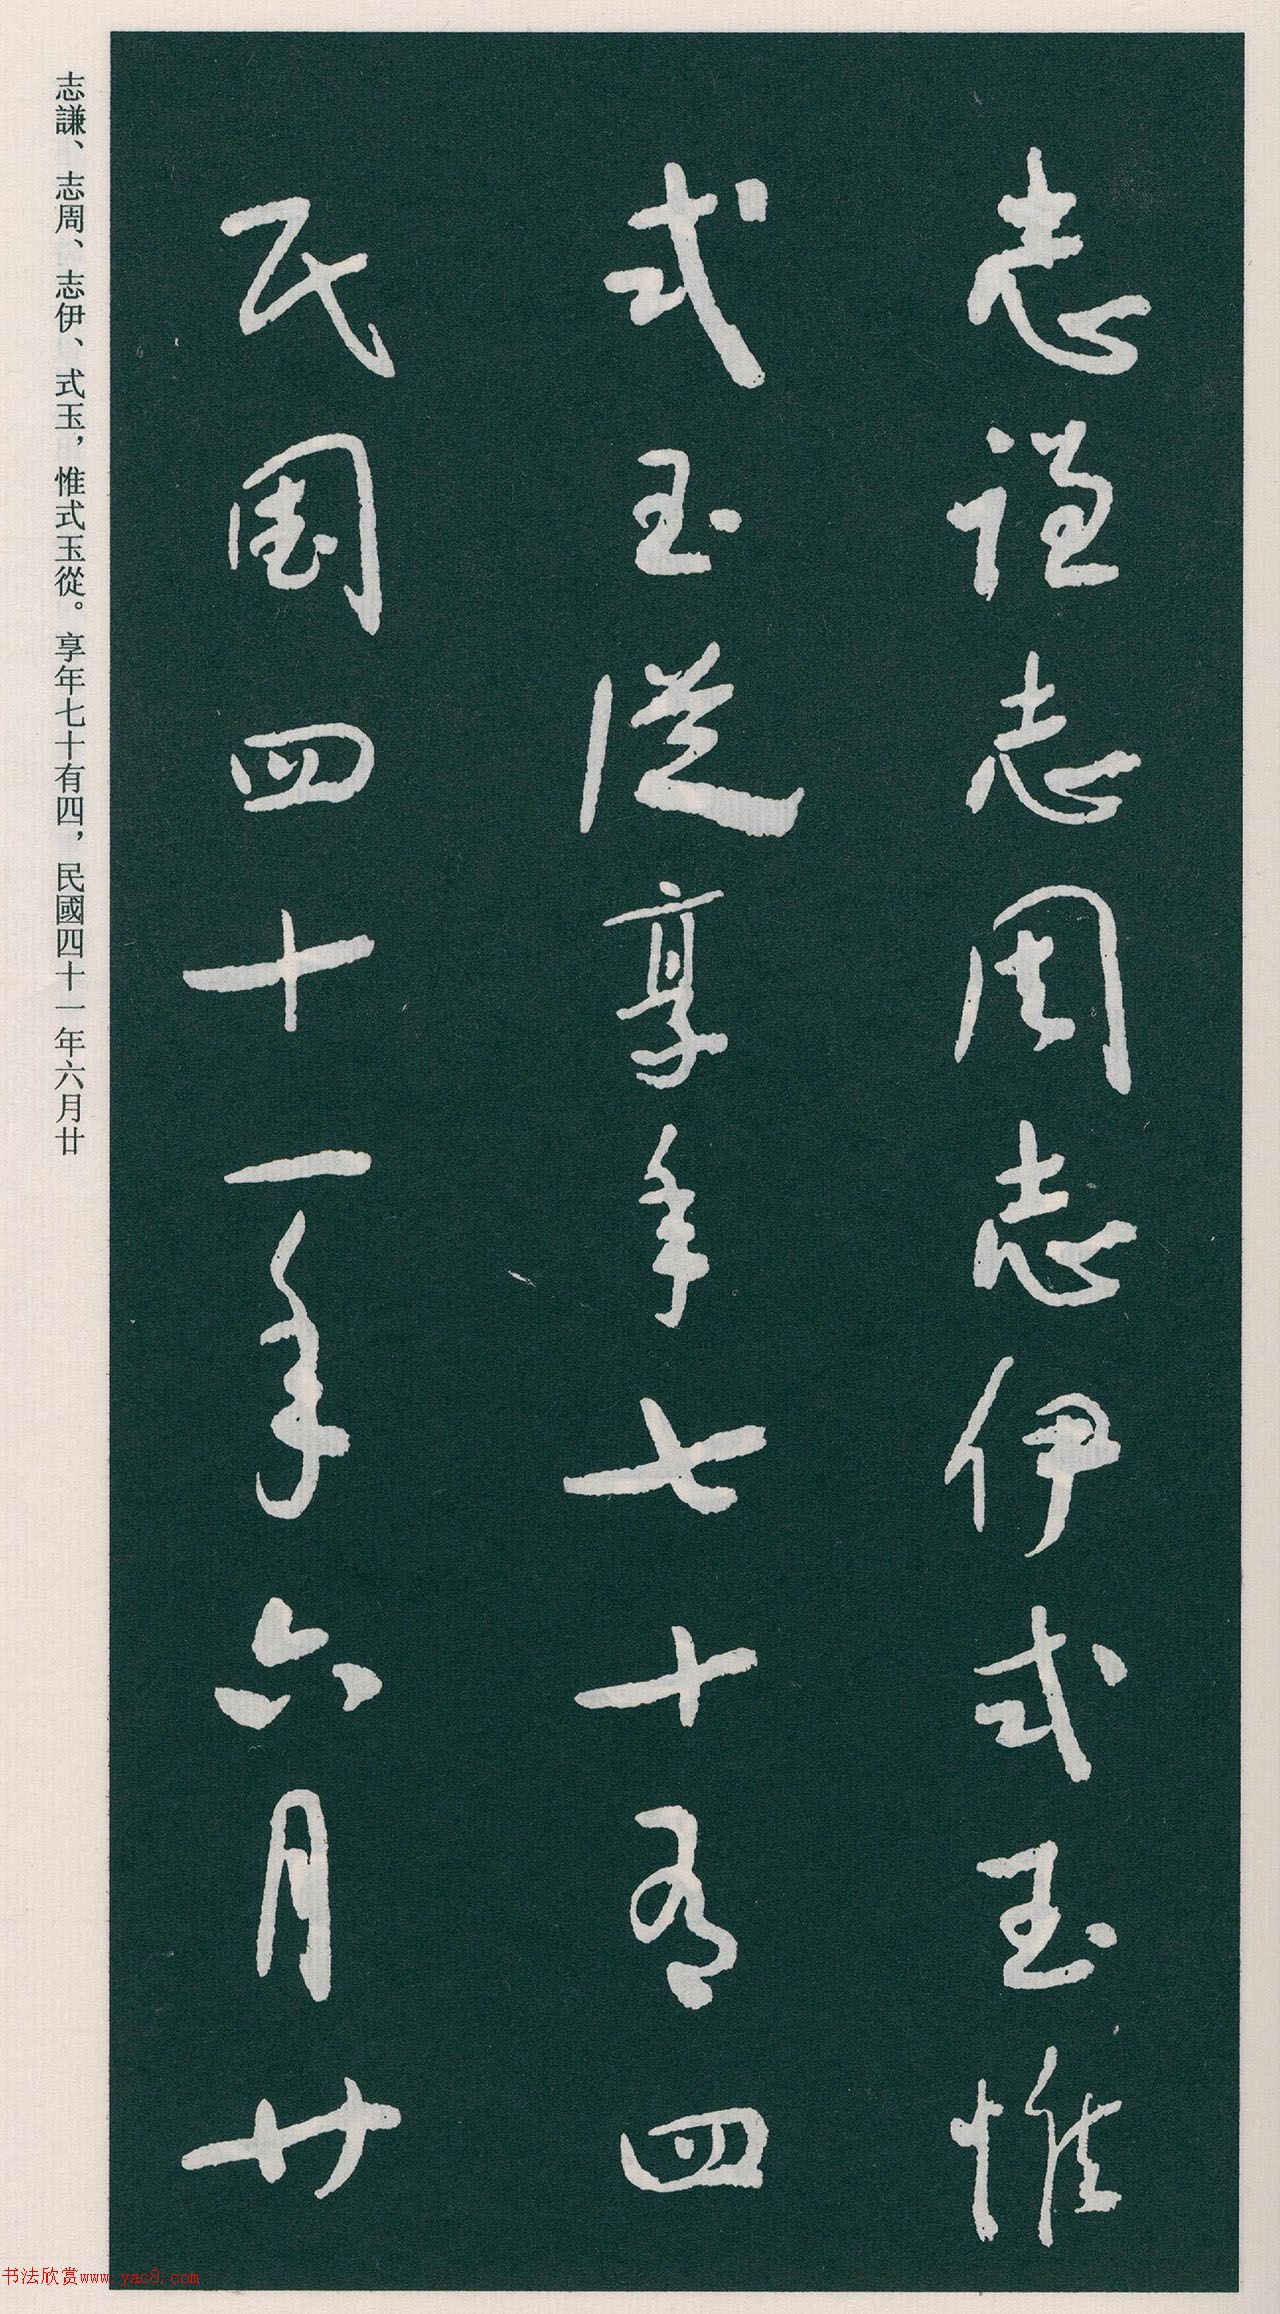 志謙志周志伊式玉惟
式玉從享年七十有四
民國四十一年六月廿
志謙、志周、志伊、式玉，惟式玉從。享年七十有四，民國四十一年六月廿
书法欣赏www.yac8.com